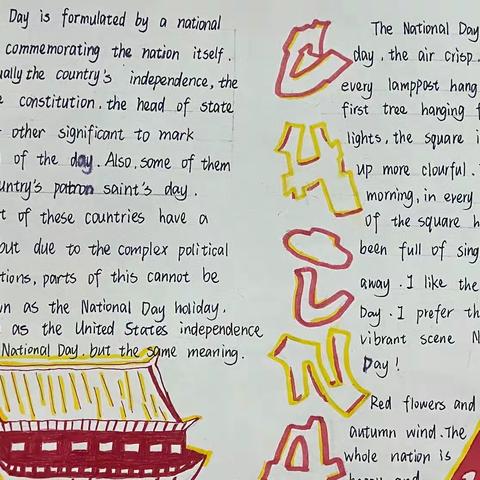 Day is formulated by a national
commemorating the nation itself.
ually the country's independence, the
constitution. the head of state
other significant to mark
of the day. Also, some of them
untry's patron saint's day.
t of these countries have a
out due to the complex political
tions, parts of this cannot be
wn as the National Day holiday.
as the United States independence
National Day. but the same meaning.
The National Day
day. the air crisp.
every lamppost hang
first tree hanging f
lights, the square i
up more clourful.
morning, in every
of the square h
been full of sing
away. I like the
Day. I prefer th
vibrant scene N
Day!
Red flowers and
autumn wind. The
whole nation is